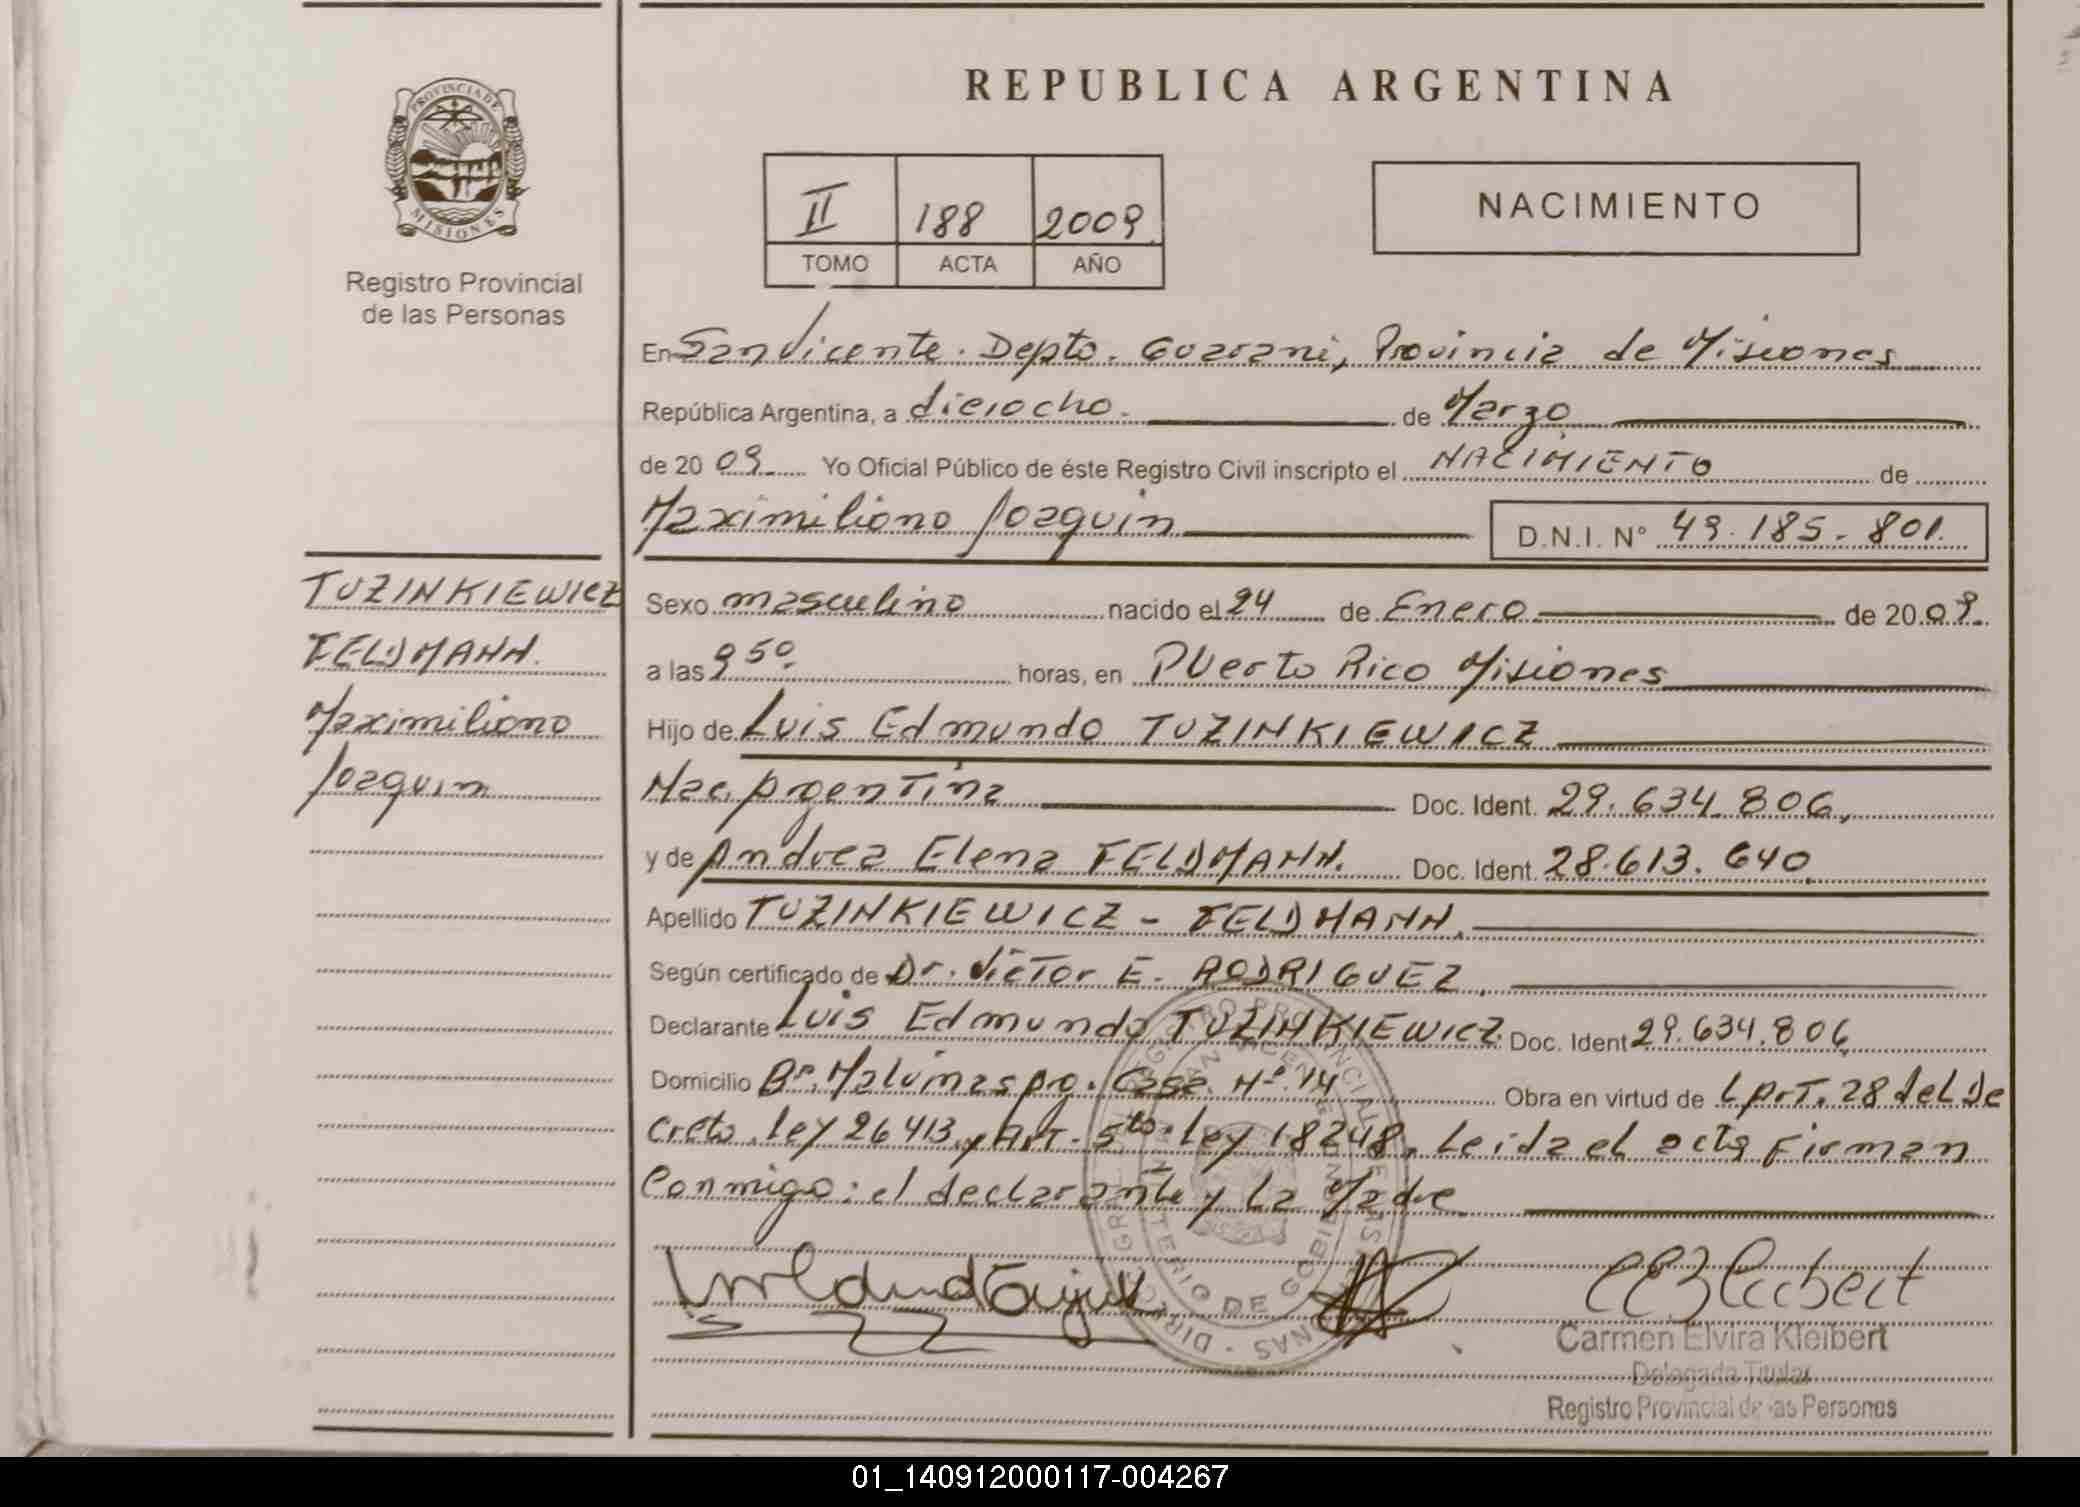 PROVINCIA DE
MISIONES
Registro Provincial
de las Personas
REPUBLICA ARGENTINA
II 188 2009
TOMO ACTA AÑO
NACIMIENTO
En San Vicente. Depto. Guarani, Provincia de Misiones
República Argentina, a dieiocho. de Marzo
de 20 09 Yo Oficial Público de éste Registro Civil inscripto el NACIMIENTO de
Maximiliano Joaquin
D.N.I. N° 49.185-801.
TUZINKIEWICZ
FELDMANN.
Maximiliano
Joaquin
Sexo masculino nacido el 24 de Enero de 20 09.
a las 9 50. horas, en Puerto Rico Misiones
Hijo de Luis Edmundo TUZINKIEWICZ
Nac. Argentina Doc. Ident. 29.634.806,
y de Andrea Elena FELDMANN. Doc. Ident. 28.613.640.
Apellido TUZINKIEWICZ - FELDMANN.
Según certificado de Dr. Victor E. RODRIGUEZ.
Declarante Luis Edmundo TUZINKIEWICZ. Doc. Ident 29.634.806
Domicilio B°. Malvinas Casa. N° 14 Obra en virtud de L Art. 28 del De
creto. ley 26413, y Art. 5to. ley 18248. Leida el acta Firman
Conmigo: el declarante y La Madre.
Carmen Elvira Kleibert
Delegada Titular
Registro Provincial de las Personas
01_140912000117-004267